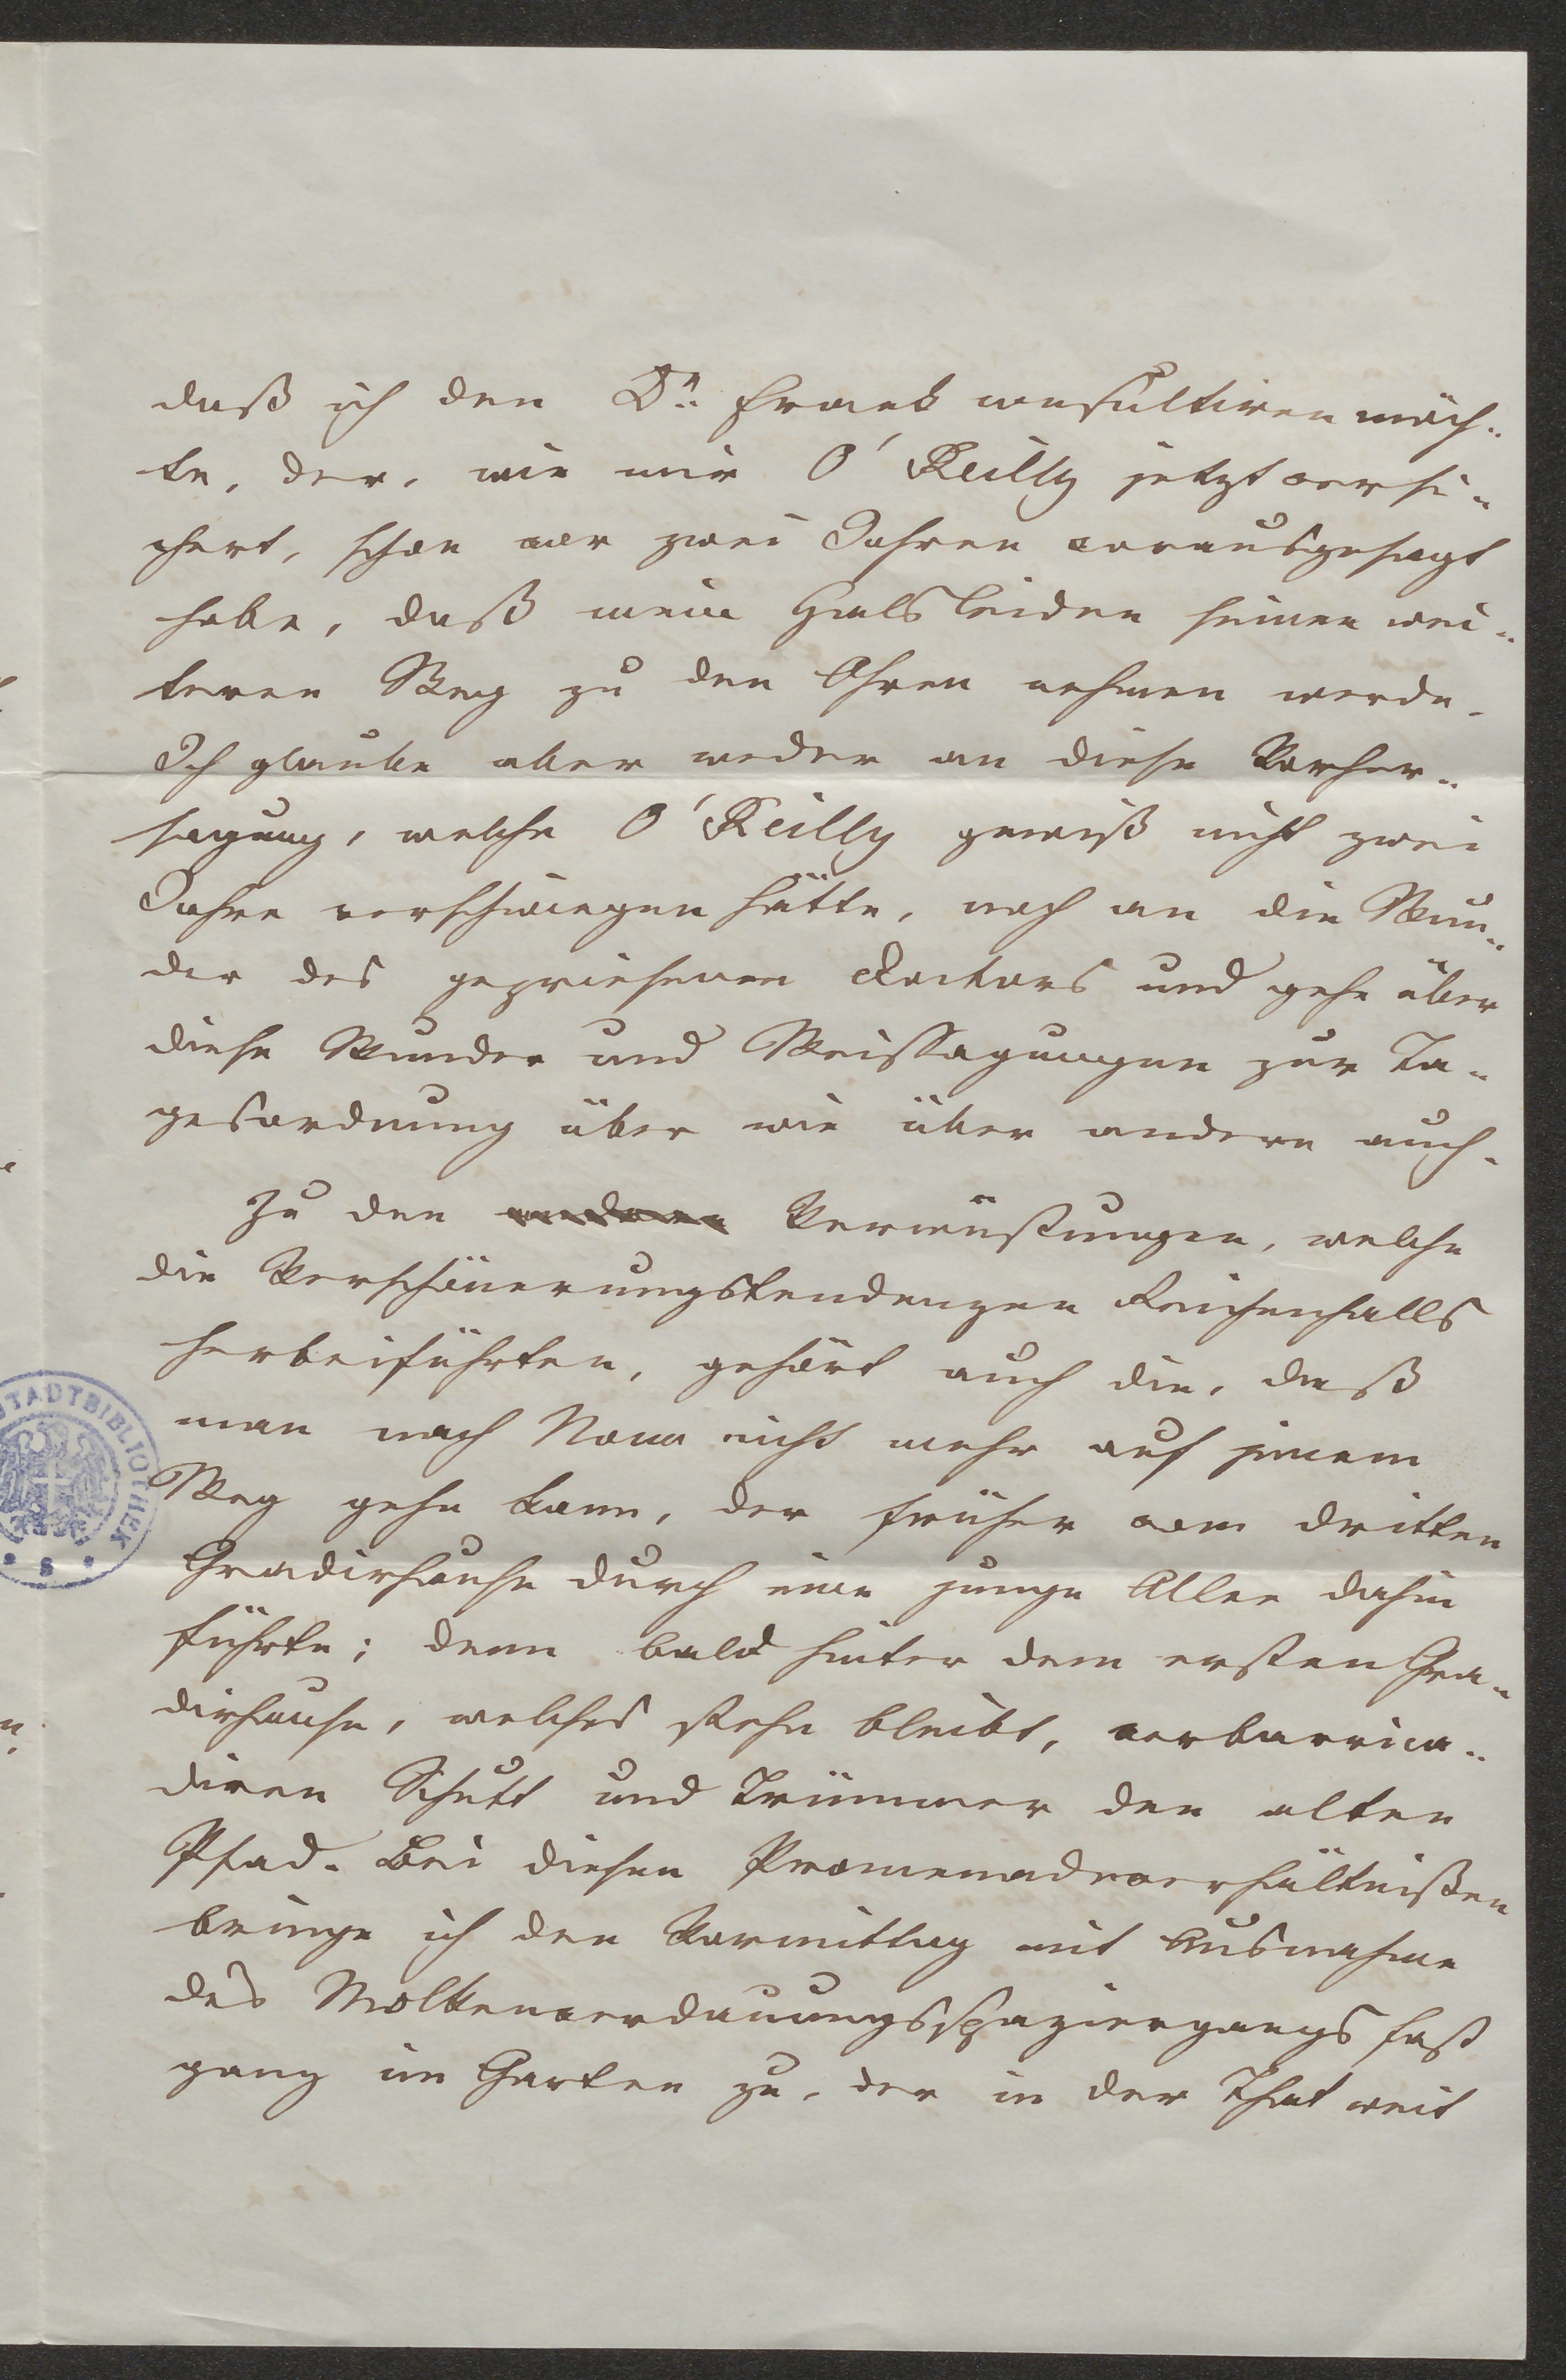 daß ich den Dr. Frank consultiren möch-
te, der, wie mir O'Reilly jetzt versi-
chert, schon vor zwei Jahren vorausgesagt
habe, daß mein Halsleiden seinen wei-
teren Weg zu den Ohren nehmen werde.
Ich glaube aber weder an diese Vorher-
sagung, welche O'Reilly gewiß nicht zwei
Jahre verschwiegen hätte, noch an die Wun-
der des gepriesenen Doctors und gehe über
diese Wunder und Weissagungen zur Ta-
gesordnung über wie über andere auch.
Zu den anderen Verwüstungen, welche
die Verschönerungstendenzen Reichenhalls
herbeiführten, gehört auch die, daß
man nach Nonn nicht mehr auf jenem
Weg gehn kann, der früher vom dritten
Gradirhause durch eine junge Allee dahin
führte; denn bald hinter dem ersten Gra-
dirhause, welches stehn bleibt, verbarrica-
diren Schutt und Trümmer den alten
Pfad. Bei diesen Promenadeverhältnißen
bringe ich den Vormittag mit Ausnahme
des Molkenverdauungsspaziergangs fast
ganz im Garten zu, der in der That weit
STADTBIBLIOTHEK